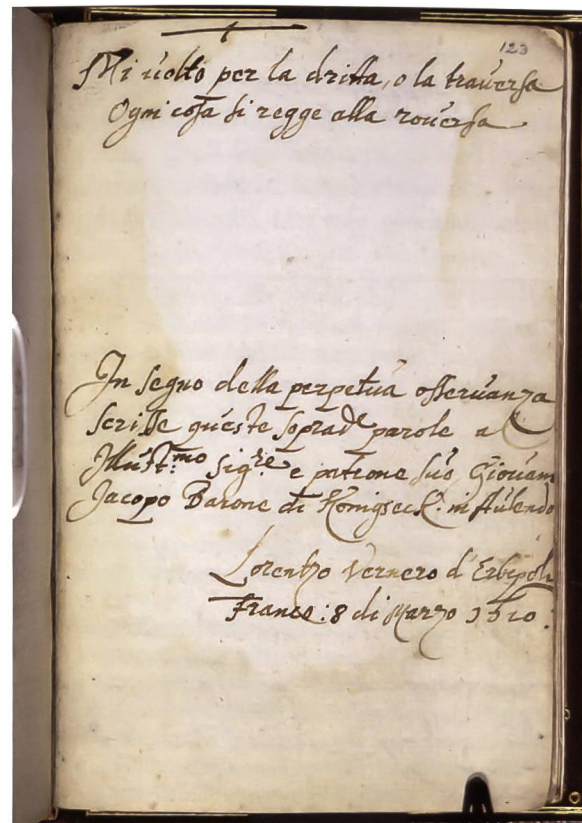 123
Mi uolto per la dritta, o la trauersa
Ogni cosa si regge alla rouersa
In segno della perpetua osseruanza
scrisse queste soprade parole al
Illust:mo Sigre e patrone suo, Giouann
Jacopo Barone di Königseck: in Aulendo
Lorentzo Vernero d'Erbipoli
Franco: 8 di Marzo 1610: